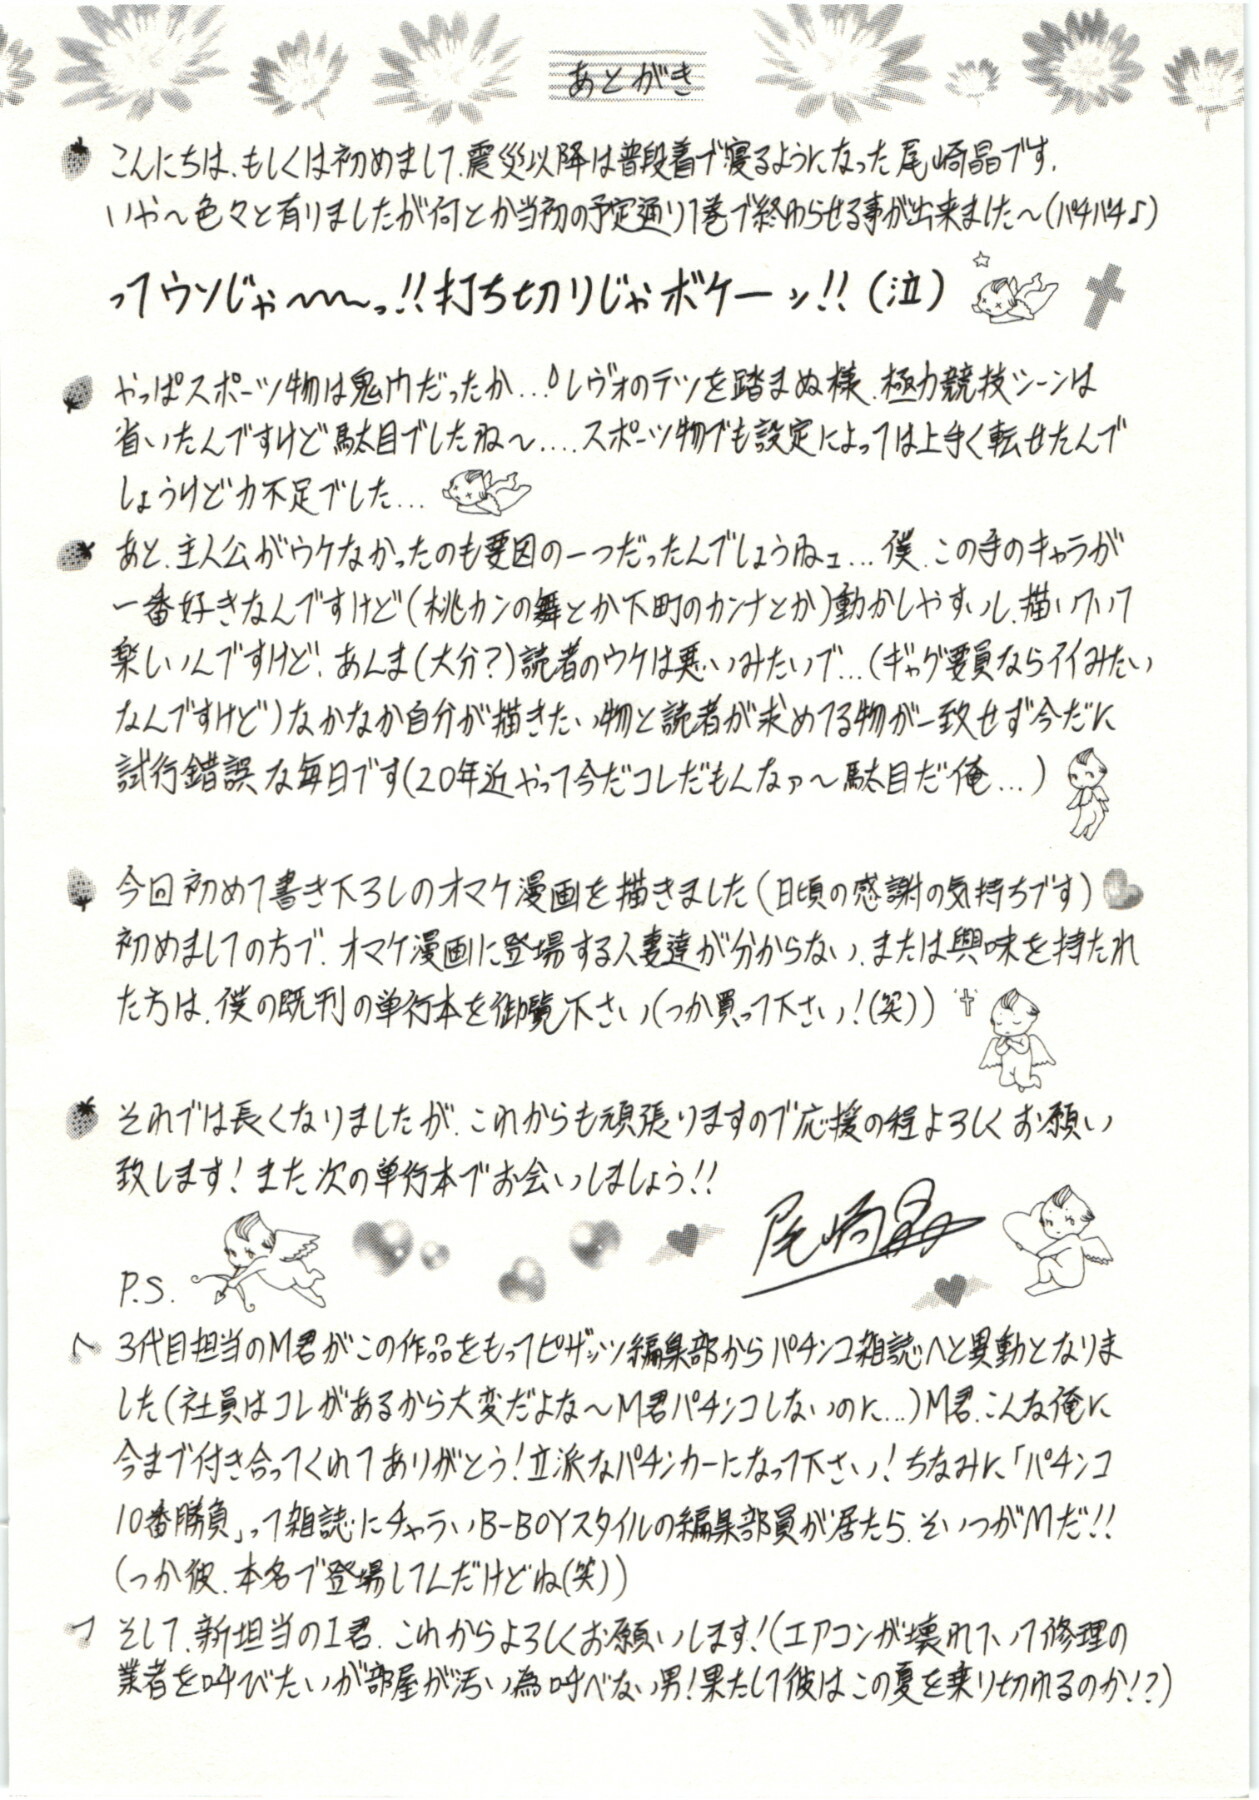 あとがき
こんにちは、もしくは初めまして、震災以降は普段着で寝るようになった尾崎晶です。
いや～色々と有りましたが何とか当初の予定通り1巻で終わらせる事が出来ました～(パチパチ♪)
ってウソじゃ〜〜〜っ!!打ち切りじゃボケーッ!!(泣)
やっぱスポーツ物は鬼門だったか...レヴォのテツを踏まぬ様、極力競技シーンは
省いたんですけど駄目でしたね～....スポーツ物でも設定によっては上手く転せたんで
しょうけど力不足でした...
あと、主人公がウケなかったのも要因の一つだったんでしょうねェ...僕、この手のキャラが
一番好きなんですけど(桃カンの舞とか下町のカンナとか)動かしやすいし、描いてて
楽しいんですけど、あんま(大分?)読者のウケは悪いみたいで...(ギャグ要員ならイイみたい
なんですけど)なかなか自分が描きたい物と読者が求めてる物が一致せず今だに
試行錯誤な毎日です(20年近やって今だコレだもんなァ～駄目だ俺...)
今回初めて書き下ろしのオマケ漫画を描きました(日頃の感謝の気持ちです)
初めましての方で、オマケ漫画に登場する人妻達が分からない、または興味を持たれ
た方は、僕の既刊の単行本を御覧下さい(つか買って下さい!(笑))
それでは長くなりましたが、これからも頑張りますので応援の程よろしくお願い
致します!また次の単行本でお会いしましょう!!
尾崎晶
P.S.
3代目担当のM君がこの作品をもってピザッツ編集部からパチンコ雑誌へと異動となりま
した(社員はコレがあるから大変だよな～M君パチンコしないのに...)M君、こんな俺に
今まで付き合ってくれてありがとう!立派なパチンカーになって下さい!ちなみに「パチンコ
10番勝負」って雑誌にチャラいB-BOYスタイルの編集部員が居たら、そいつがMだ!!
(つか彼、本名で登場してんだけどね(笑))
そして、新担当のI君、これからよろしくお願いします!(エアコンが壊れていて修理の
業者を呼びたいが部屋が汚い為呼べない男!果たして彼はこの夏を乗り切れるのか!?)